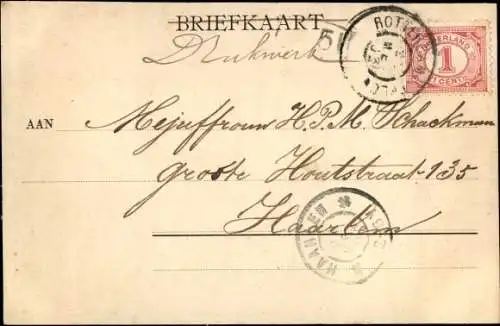 BRIEFKAART
Drukwerk
5
ROTTERDAM
NEDERLAND
1
CENT
AAN
Mejuffrouw H.P.M. Schackman
groote Houtstraat 135
Haarlem
HAARLEM